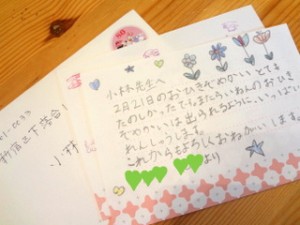 小林先生へ
2月21日のおひきぞめかいとても
たのしかったです。またらいねんのおひき
ぞめかいは出られるように、いっぱい
れんしゅうします。
これからもよろしくおねがいします。
より
新宿区下落合
小林